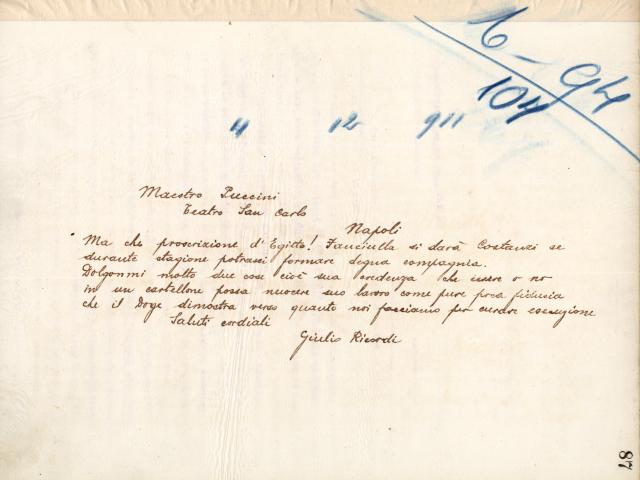 6 - 94
104
4 12 911
Maestro Puccini
Teatro San Carlo
Napoli
Ma che proscrizione d'Egitto! Fanciulla si darà Costanzi se
durante stagione potrassi formare degna compagnia.
Dolgonmi molto due cose cioè sua credenza che essere o no
in un cartellone possa nuocere suo lavoro come pure poca fiducia
che il Doge dimostra verso quanto noi facciamo per curare esecuzione
Saluti cordiali
Giulio Ricordi
87